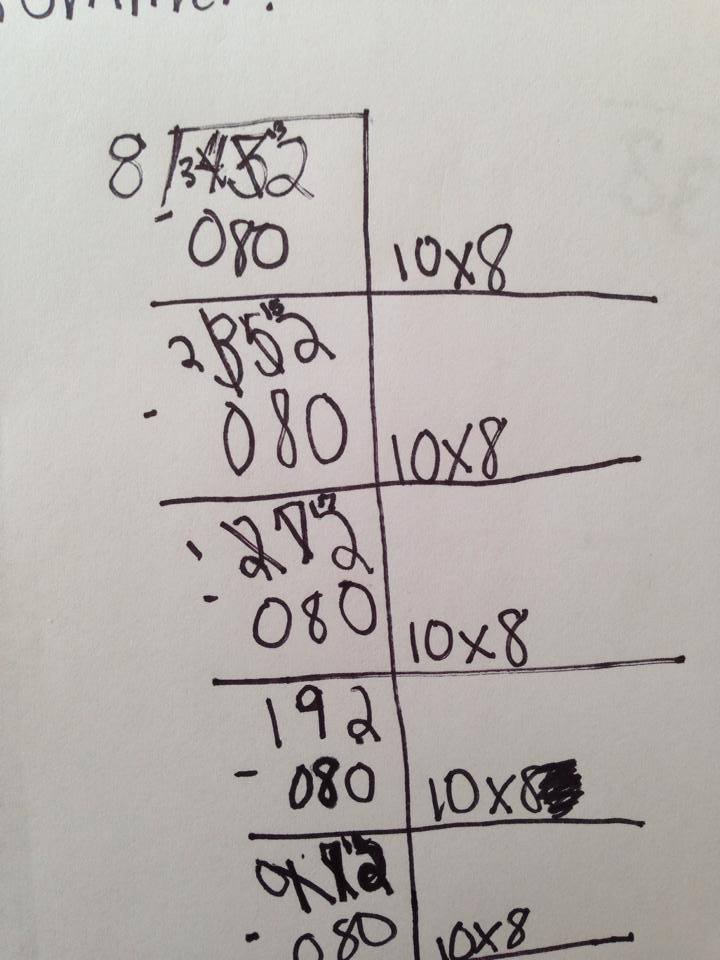 13
8 3 432
- 080 10x8
15
2 352
- 080 10x8
17
1 272
- 080 10x8
192
- 080 10x8
0 112
- 080 10x8